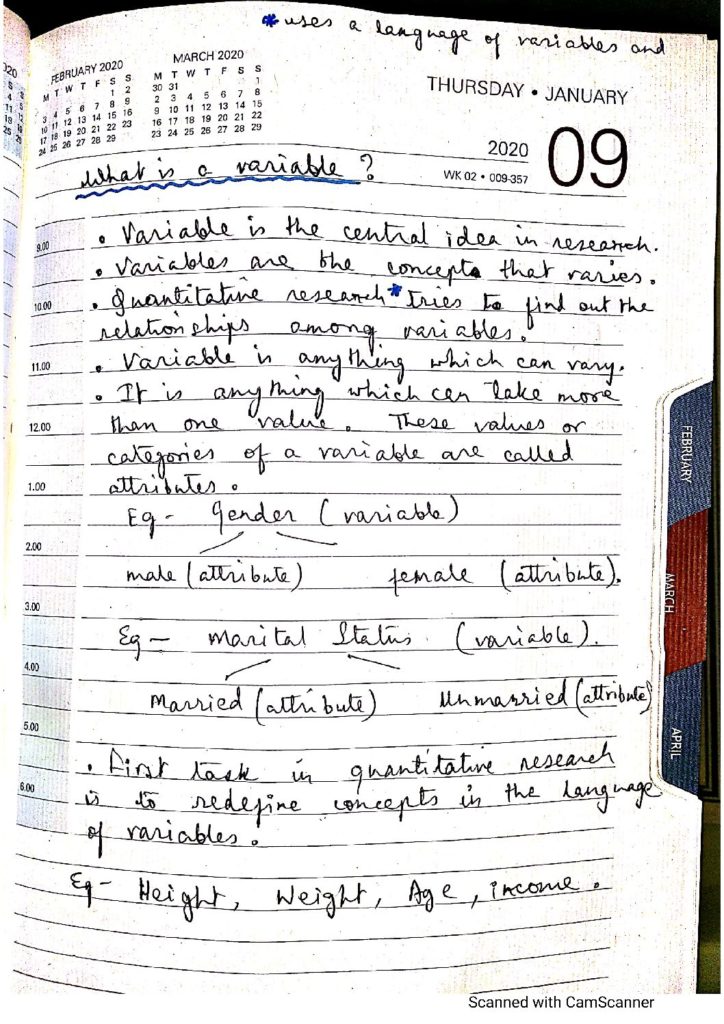 *uses a language of variables and
020
S
4
11
18
25
S
5
12
19
26
FEBRUARY 2020
M T W T F S S
1 2
3 4 5 6 7 8 9
10 11 12 13 14 15 16
17 18 19 20 21 22 23
24 25 26 27 28 29
MARCH 2020
M T W T F S S
30 31 1
2 3 4 5 6 7 8
9 10 11 12 13 14 15
16 17 18 19 20 21 22
23 24 25 26 27 28 29
THURSDAY • JANUARY
2020
WK 02 • 009-357
09
What is a variable ?
9.00 • Variable is the central idea in research.
• Variables are the concepts that varies.
10.00 • Quantitative research* tries to find out the
relationships among variables.
11.00 • Variable is anything which can vary.
• It is anything which can take more
12.00 than one value. These values or
categories of a variable are called
1.00 attributes.
Eg - Gender (variable)
2.00
male (attribute) female (attribute).
3.00
Eg - Marital Status (variable).
4.00
Married (attribute) Unmarried (attribute)
5.00
• First task in quantitative research
6.00 is to redefine concepts in the language
of variables.
Eg - Height, Weight, Age, income.
FEBRUARY
MARCH
APRIL
Scanned with CamScanner